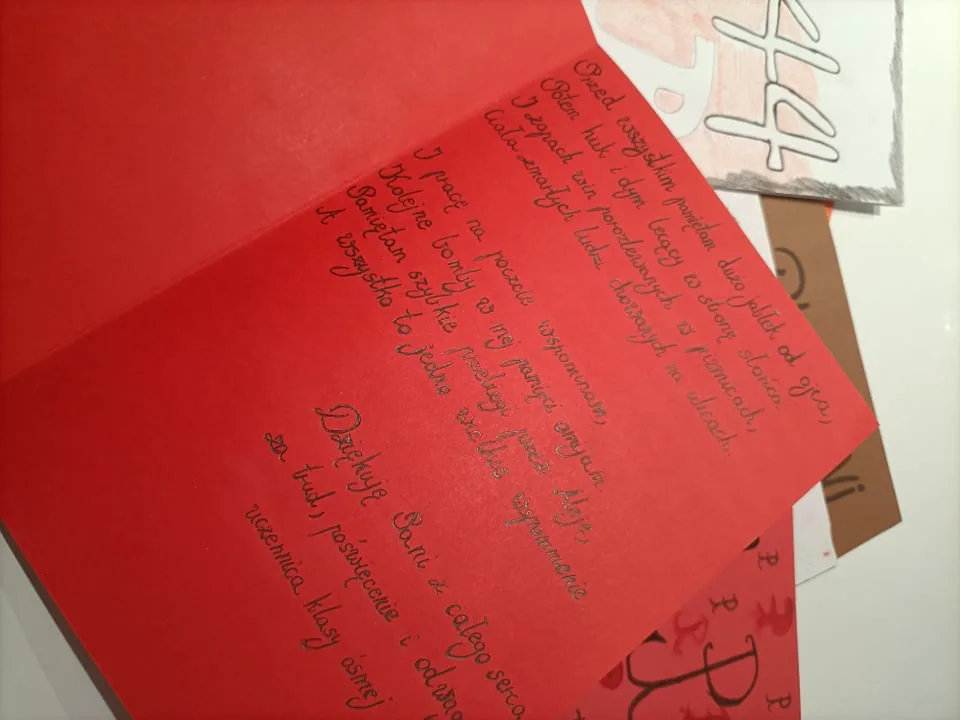 Przed wszystkim pamiętam dużo jabłek od ojca,
Potem huk i dym lecący w stronę słońca.
I zapach win porozlewanych w piwnicach,
Ciała zmarłych ludzi chowanych na ulicach.
I pracę na poczcie wspominam,
Kolejne bomby w mej pamięci
Pamiętam szybkie przebiegi przez Aleje,
A wszystko to jedno wielkie wspomnienie.
Dziękuję Pani z całego serca
za trud, poświęcenie i odwagę
uczennica klasy ósmej
44
P
P
P
P